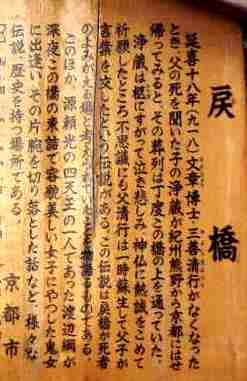 戻橋
延喜十八年(九一八)文章博士三善清行がなくなった
とき、父の死を聞いた子の浄蔵が紀州熊野から京都にはせ
帰ってみると、その葬列は丁度この橋の上を通っていた。
浄蔵は柩にすがって泣き悲しみ、神仏に熱誠をこめて
祈願したところ、不思議にも父清行は一時蘇生して父子が
言葉を交したという伝説がある。この伝説は戻橋が死者
のよみがえる橋と考えられていたことを物語るものである。
このほか、源頼光の四天王の一人であった渡辺綱が
深夜この橋の東詰で容貌美しい女子にやつした鬼女
に出逢い、その片腕を切り落とした話など、様々な
伝説、歴史を持つ場所である。
京都市